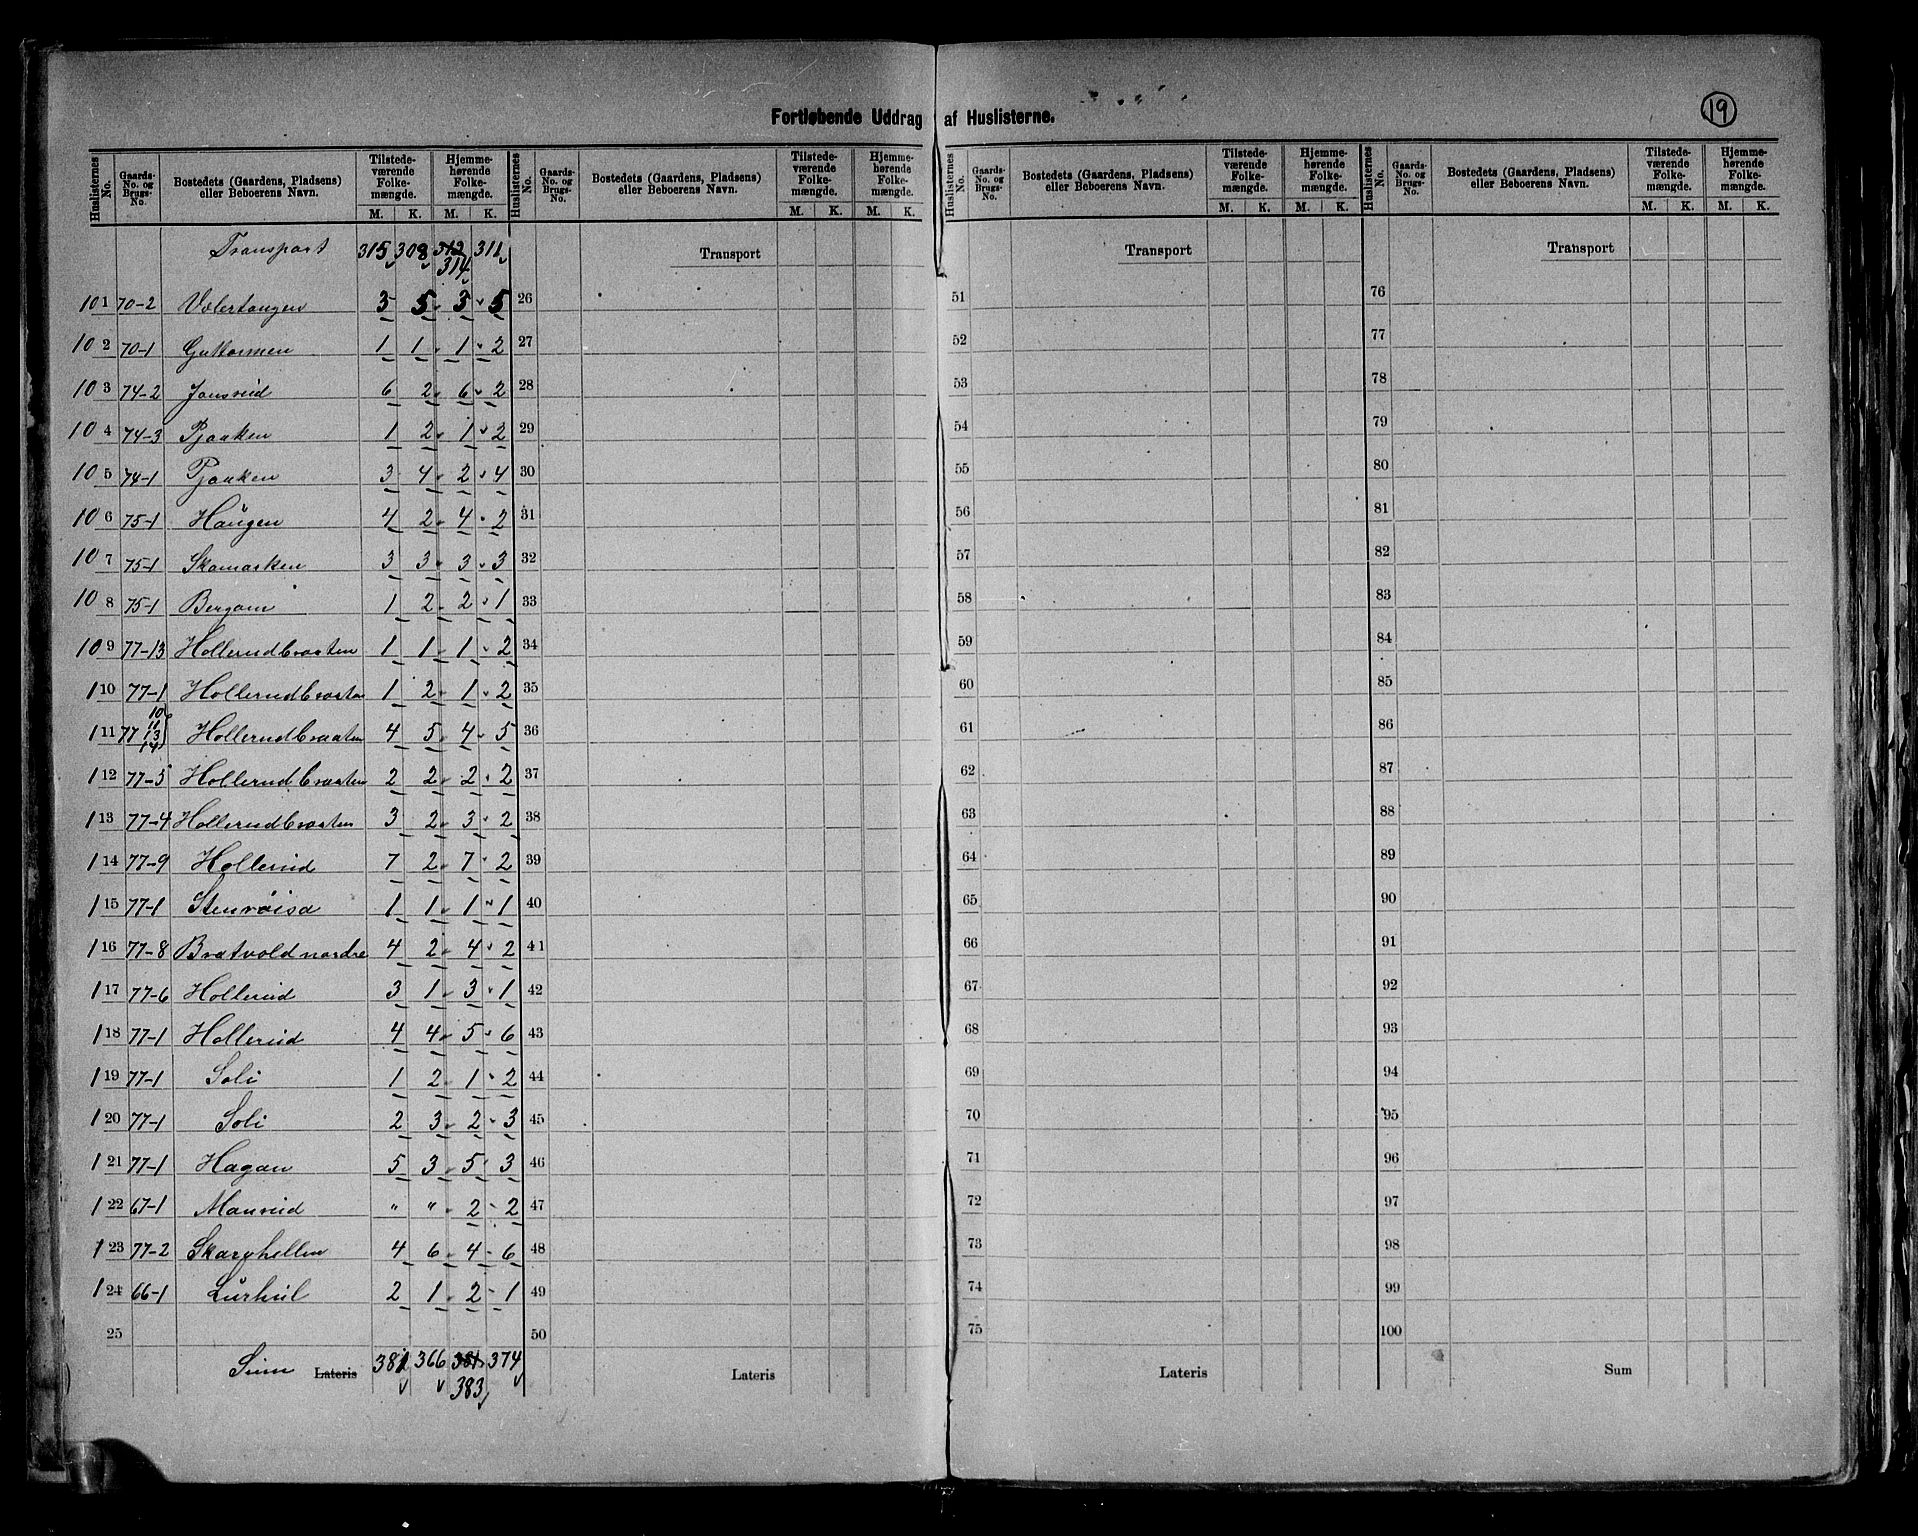 Fortløbende Uddrag af Huslisterne.
19
Huslisternes No. Gaards-No. og Brugs-No. Bostedets (Gaardens, Pladsens) eller Beboerens Navn. Tilstedeværende Folkemængde. M. K. Hjemmehørende Folkemængde. M. K.
Huslisternes No. Gaards-No. og Brugs-No. Bostedets (Gaardens, Pladsens) eller Beboerens Navn. Tilstedeværende Folkemængde. M. K. Hjemmehørende Folkemængde. M. K.
Huslisternes No. Gaards-No. og Brugs-No. Bostedets (Gaardens, Pladsens) eller Beboerens Navn. Tilstedeværende Folkemængde. M. K. Hjemmehørende Folkemængde. M. K.
Huslisternes No. Gaards-No. og Brugs-No. Bostedets (Gaardens, Pladsens) eller Beboerens Navn. Tilstedeværende Folkemængde. M. K. Hjemmehørende Folkemængde. M. K.
Transport 315 308 312 311 Transport Transport Transport
314
101 70-2 Vælertangen 3 5 3 5 26 51 76
102 70-1 Guttormen 1 1 1 2 27 52 77
103 74-2 Jonsrud 6 2 6 2 28 53 78
104 74-3 Pjaaken 1 2 1 2 29 54 79
105 74-1 Pjaaken 3 4 2 4 30 55 80
106 75-1 Haugen 4 2 4 2 31 56 81
107 75-1 Skamarken 3 3 3 3 32 57 82
108 75-1 Bergom 1 2 2 1 33 58 83
109 77-13 Hollerudbraaten 1 1 1 2 34 59 84
110 77-1 Hollerudbraaten 1 2 1 2 35 60 85
111 77 10 11 13 14 Hollerudbraaten 4 5 4 5 36 61 86
112 77-5 Hollerudbraaten 2 2 2 2 37 62 87
113 77-4 Hollerudbraaten 3 2 3 2 38 63 88
114 77-9 Hollerud 7 2 7 2 39 64 89
115 77-1 Stenrøisa 1 1 1 1 40 65 90
116 77-8 Bratvold nordre 4 2 4 2 41 66 91
117 77-6 Hollerud 3 1 3 1 42 67 92
118 77-1 Hollerud 4 4 5 6 43 68 93
119 77-1 Soli 1 2 1 2 44 69 94
120 77-1 Soli 2 3 2 3 45 70 95
121 77-1 Hagan 5 3 5 3 46 71 96
122 67-1 Maurud " " 2 2 47 72 97
123 77-2 Skarphellen 4 6 4 6 48 73 98
124 66-1 Lurhul 2 1 2 1 49 74 99
25 50 75 100
Sum Lateris 381 366 381 374 Lateris Lateris Sum
383